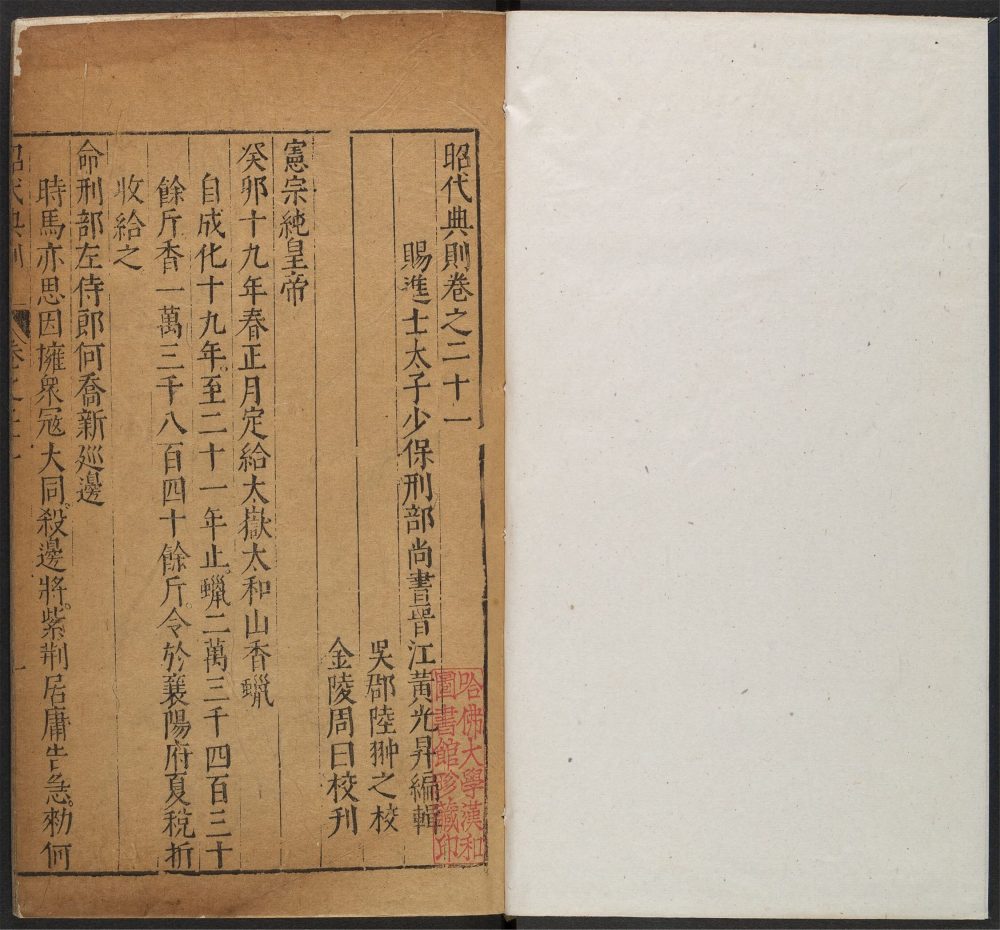 昭代典則卷之二十一
賜進士太子少保刑部尚書晉江黃光昇編輯
吳郡陸翀之校
金陵周曰校刊
憲宗純皇帝
癸卯十九年春正月定給太嶽太和山香蠟
自成化十九年至二十一年止。蠟二萬三千四百三十
餘斤香一萬三千八百四十餘斤。令於襄陽府夏稅折
收給之
命刑部左侍郎何喬新廵邊
時馬亦思因擁衆冦大同。殺邊將。紫荆居庸告急。勑何
昭代典則
卷之二十一
一
哈佛大學漢和
圖書館珍藏印